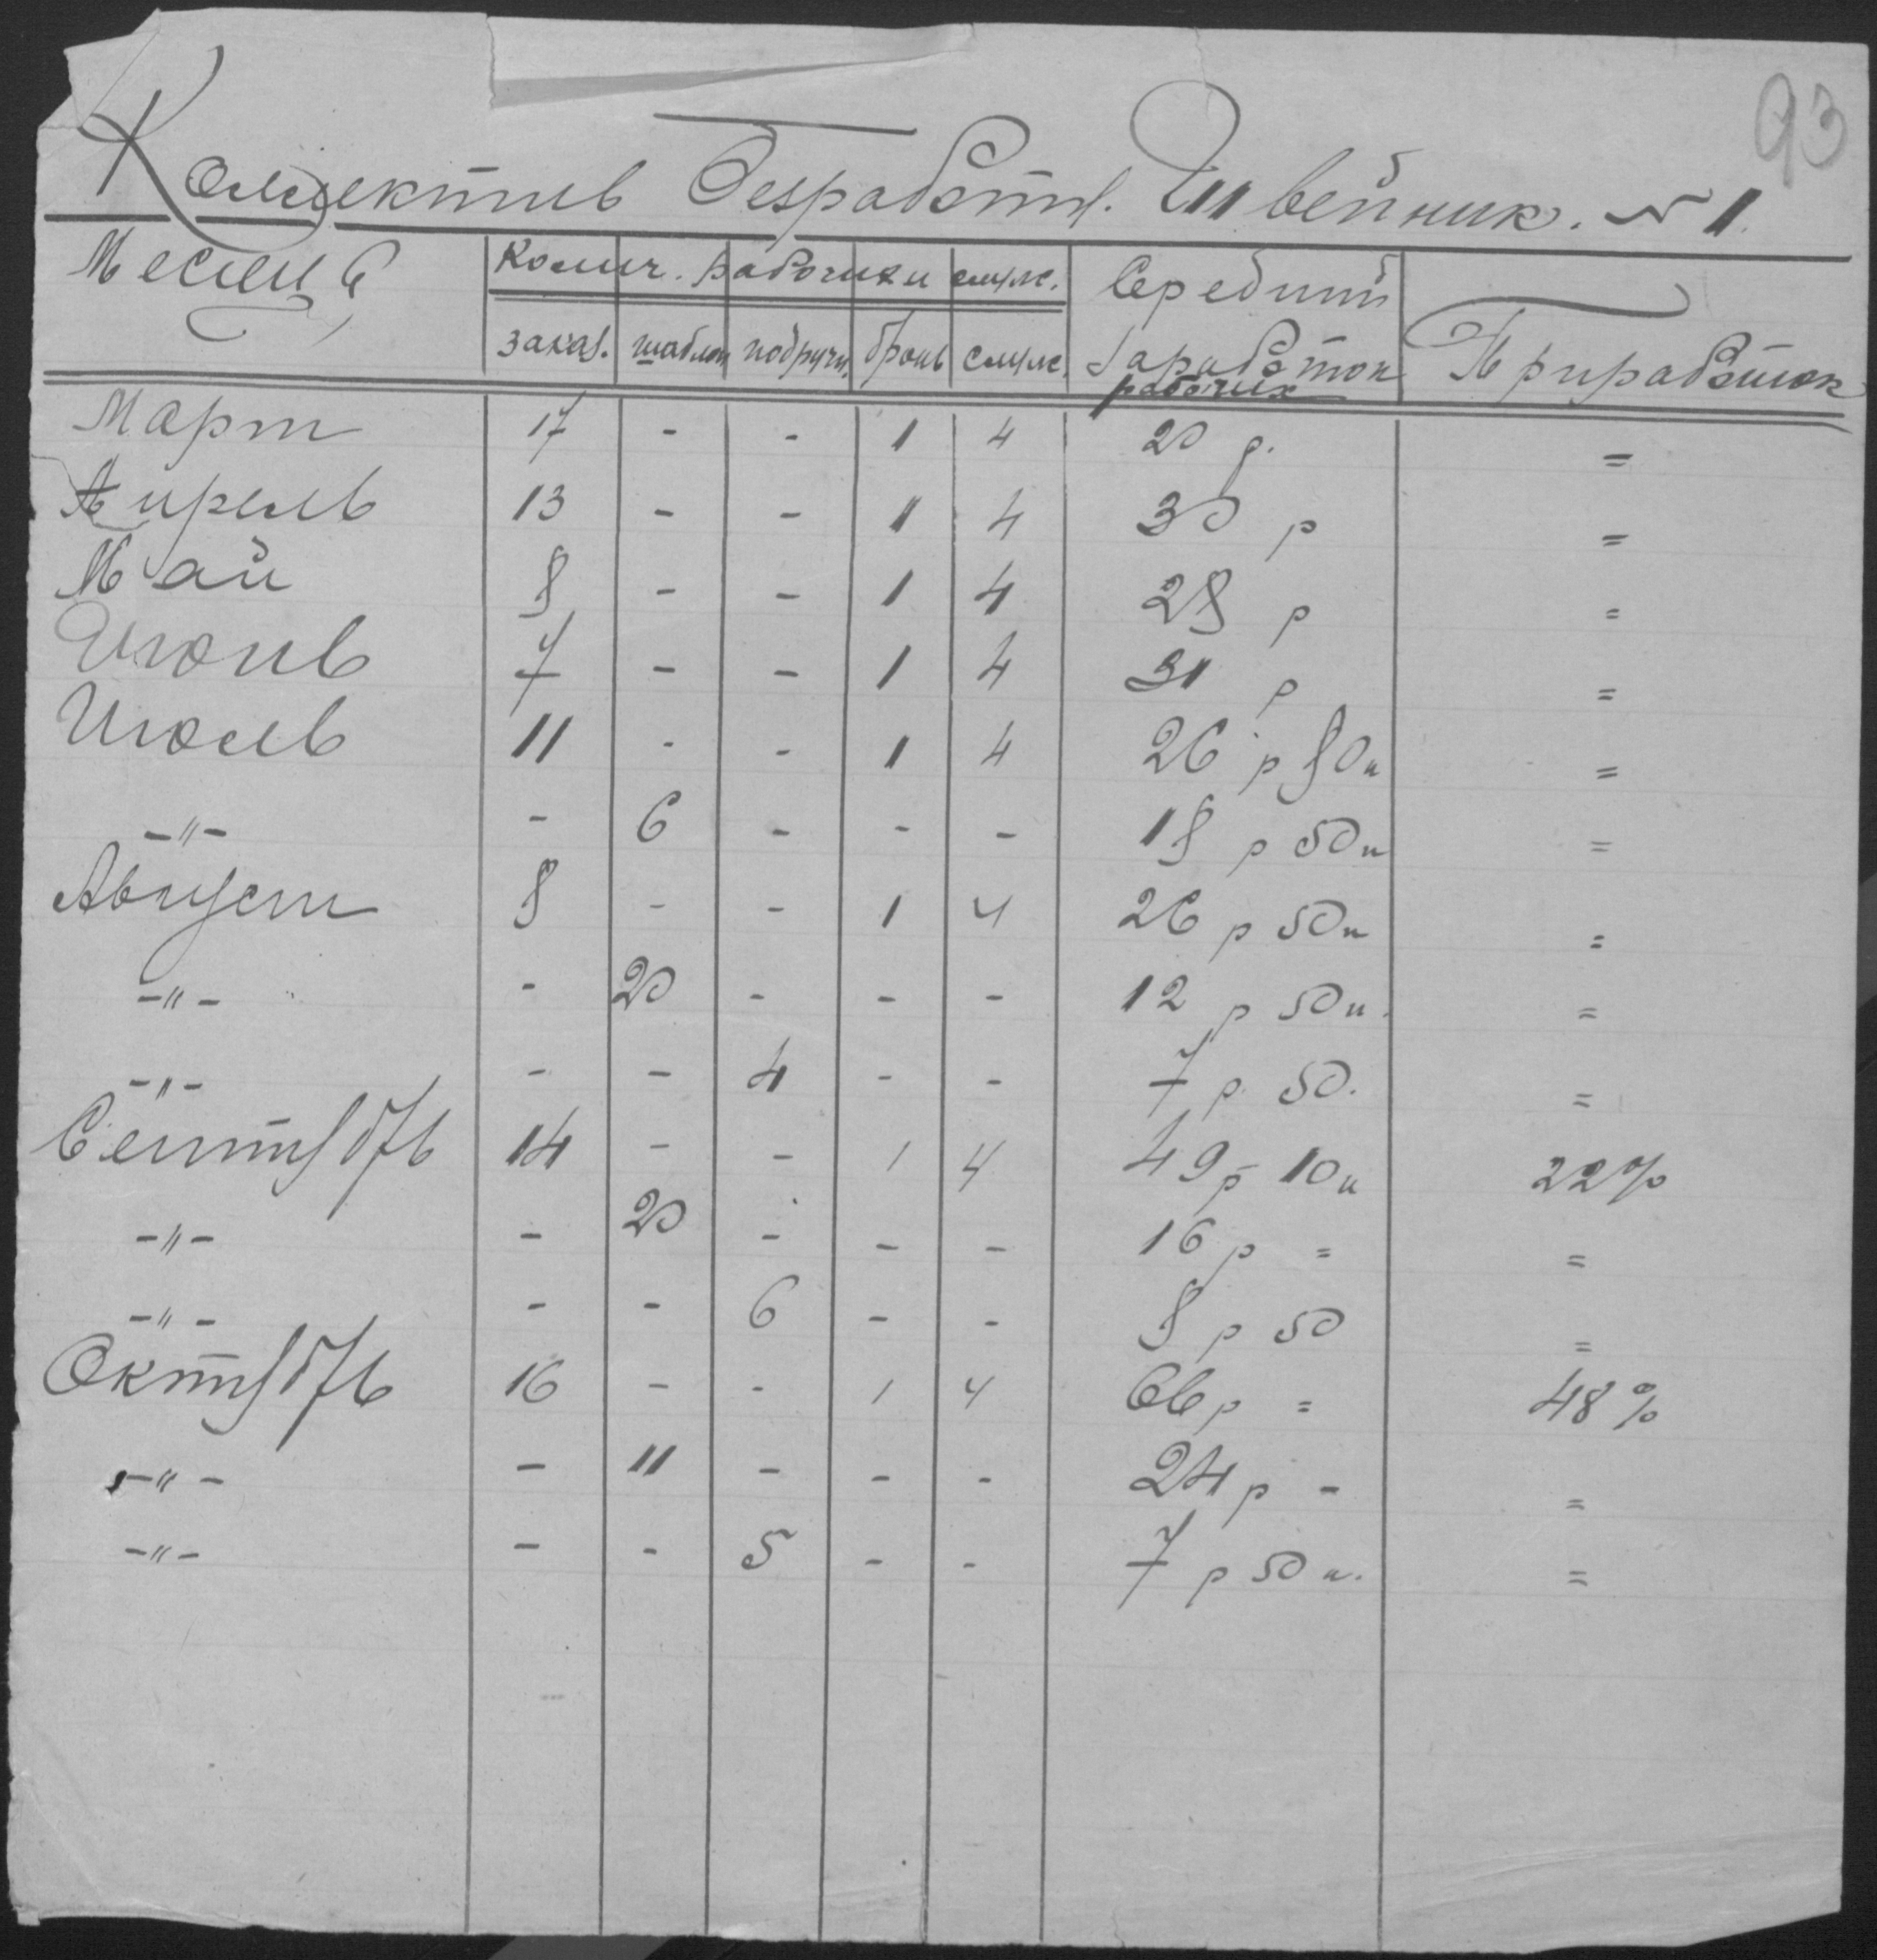 93
Коллектив безработн. Швейник. № 1.
Месяц
Колич. рабочих и служ.
Середний заработок рабочих
Приработок
заказ. шаблон подручн. бронь служ.
Март 17 - - 1 4 20 р. =
Апрель 13 - - 1 4 30 р =
Май 8 - - 1 4 28 р =
Июнь 7 - - 1 4 31 р =
Июль 11 - - 1 4 26 р 80 к =
-"- - 6 - - - 18 р 50 к =
Август 8 - - 1 4 26 р 50 к =
-"- - 20 - - - 12 р 50 к. =
-"- - - 4 - - 7 р. 50. =
Сентябрь 14 - - 1 4 49 р 10 к 22%
-"- - 20 - - - 16 р = =
-"- - - 6 - - 8 р 50 =
Октябрь 16 - - 1 4 66 р = 48%
-"- - 11 - - - 24 р - =
-"- - - 5 - - 7 р 50 к. =